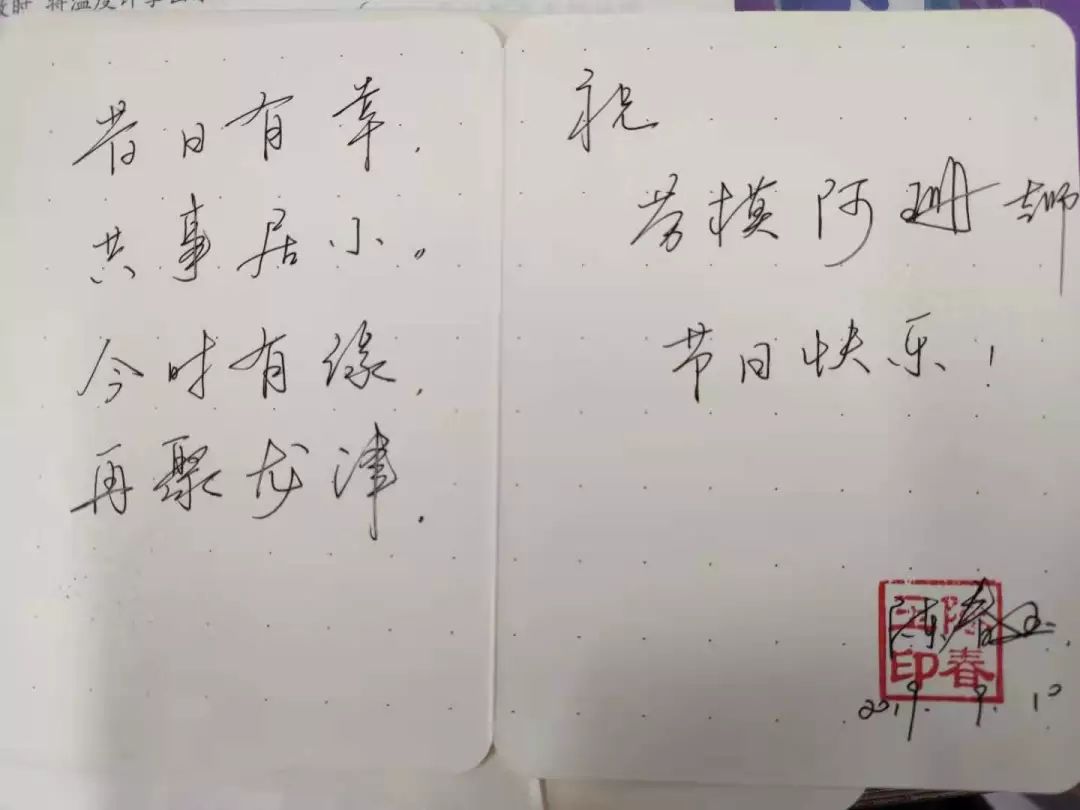 昔日有幸，
共事居小。
今时有缘，
再聚龙津．
祝
劳模阿珊老师
节日快乐！
陈春玉
陈春玉印
2019.9.10